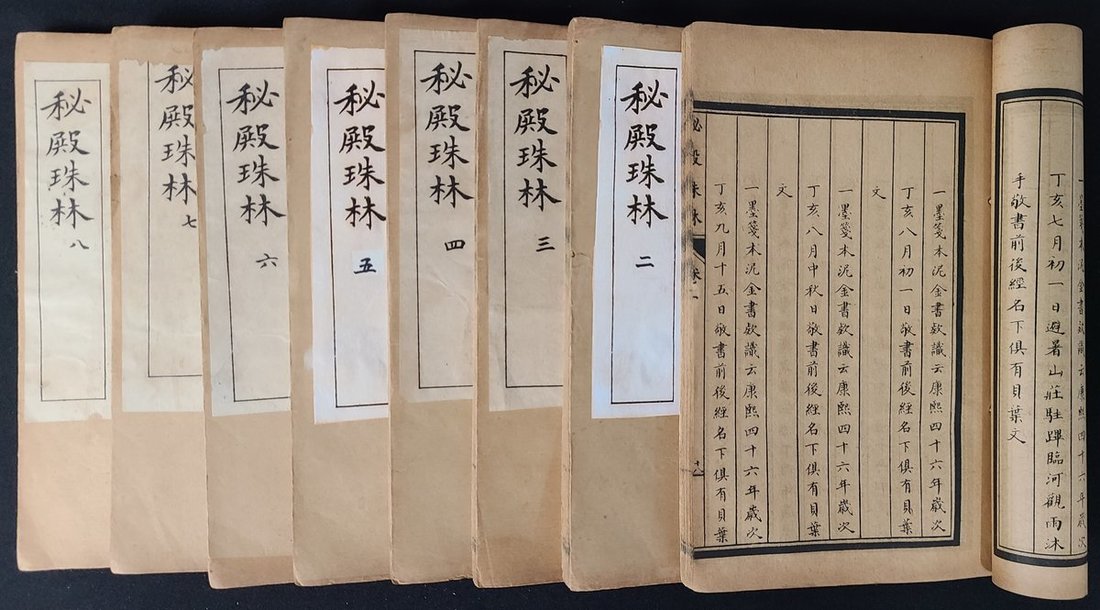 一墨箋本泥金書款識云康熙四十六年歲次
丁亥七月初一日避暑山莊駐蹕臨河觀雨沐
手敬書前後經名下俱有貝葉文
一墨箋本泥金書款識云康熙四十六年歲次
丁亥八月初一日敬書前後經名下俱有貝葉
文
一墨箋本泥金書款識云康熙四十六年歲次
丁亥八月中秋日敬書前後經名下俱有貝葉
文
一墨箋本泥金書款識云康熙四十六年歲次
丁亥九月十五日敬書前後經名下俱有貝葉
秘殿珠林 卷一
秘殿珠林 二
秘殿珠林 三
秘殿珠林 四
秘殿珠林 五
秘殿珠林 六
秘殿珠林 七
秘殿珠林 八